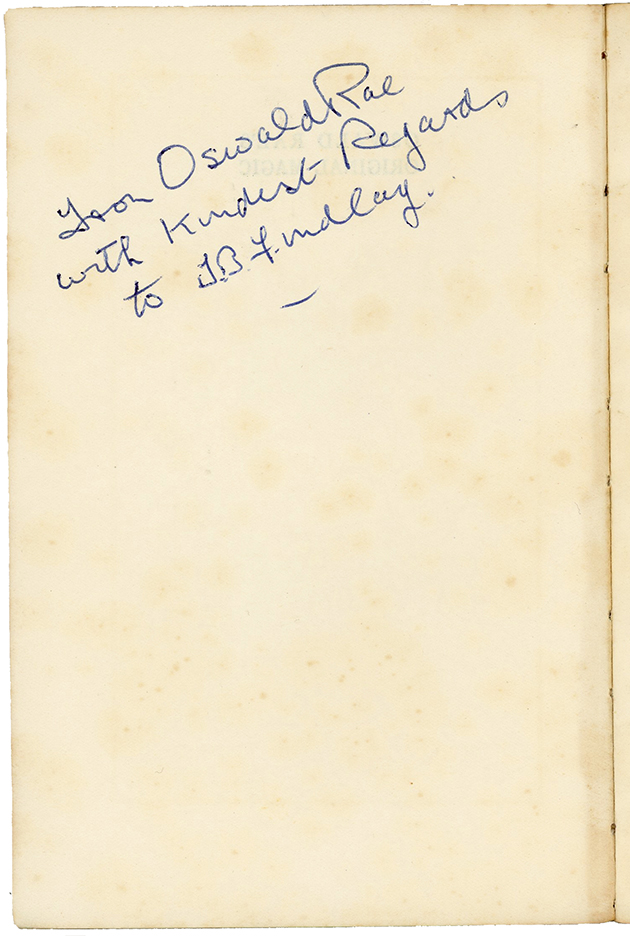 From Oswald Rae
with Kindest Regards
to J.B. Findlay.